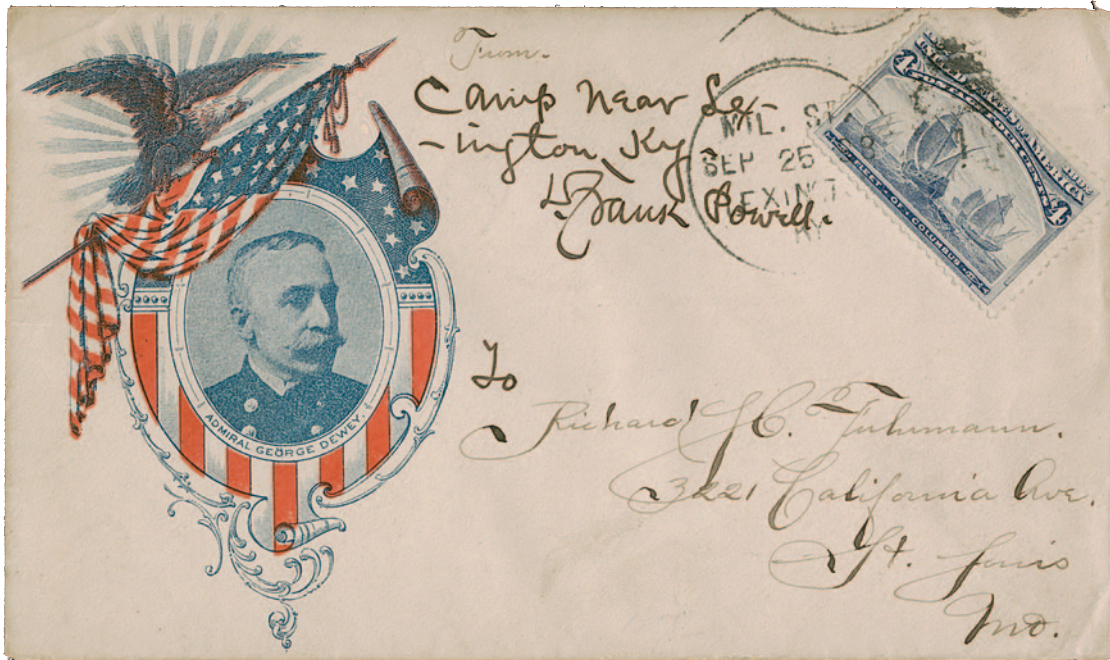 From.
Camp Near Lex-
-ington, Ky.
L Frank Powell.
MIL. ST
SEP 25
EXINGT
KY
4
FLEET · OF · COLUMBUS
4
ADMIRAL GEORGE DEWEY.
To
Richard H. Fuhrmann.
3221 California Ave.
St. Louis
Mo.